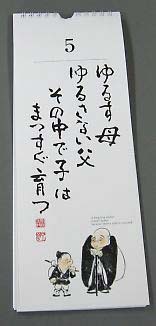 5
ゆるす母
ゆるさない父
その中で子は
まっすぐ育つ